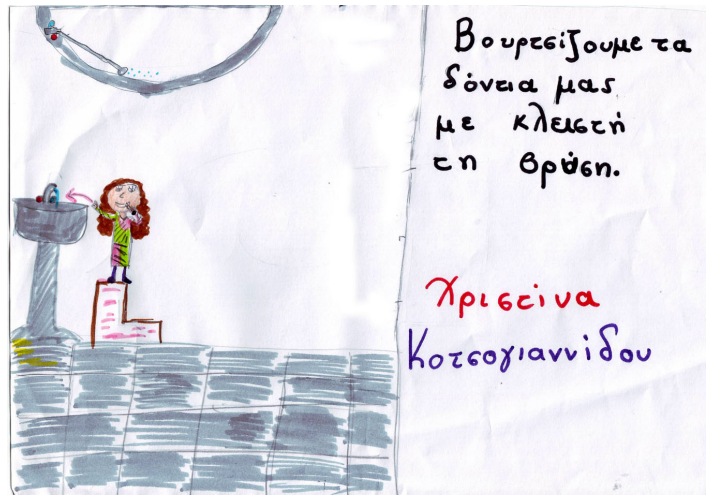 Βουρτσίζουμε τα
δόντια μας
με κλειστή
τη βρύση.
Χριστίνα
Κοτσογιαννίδου